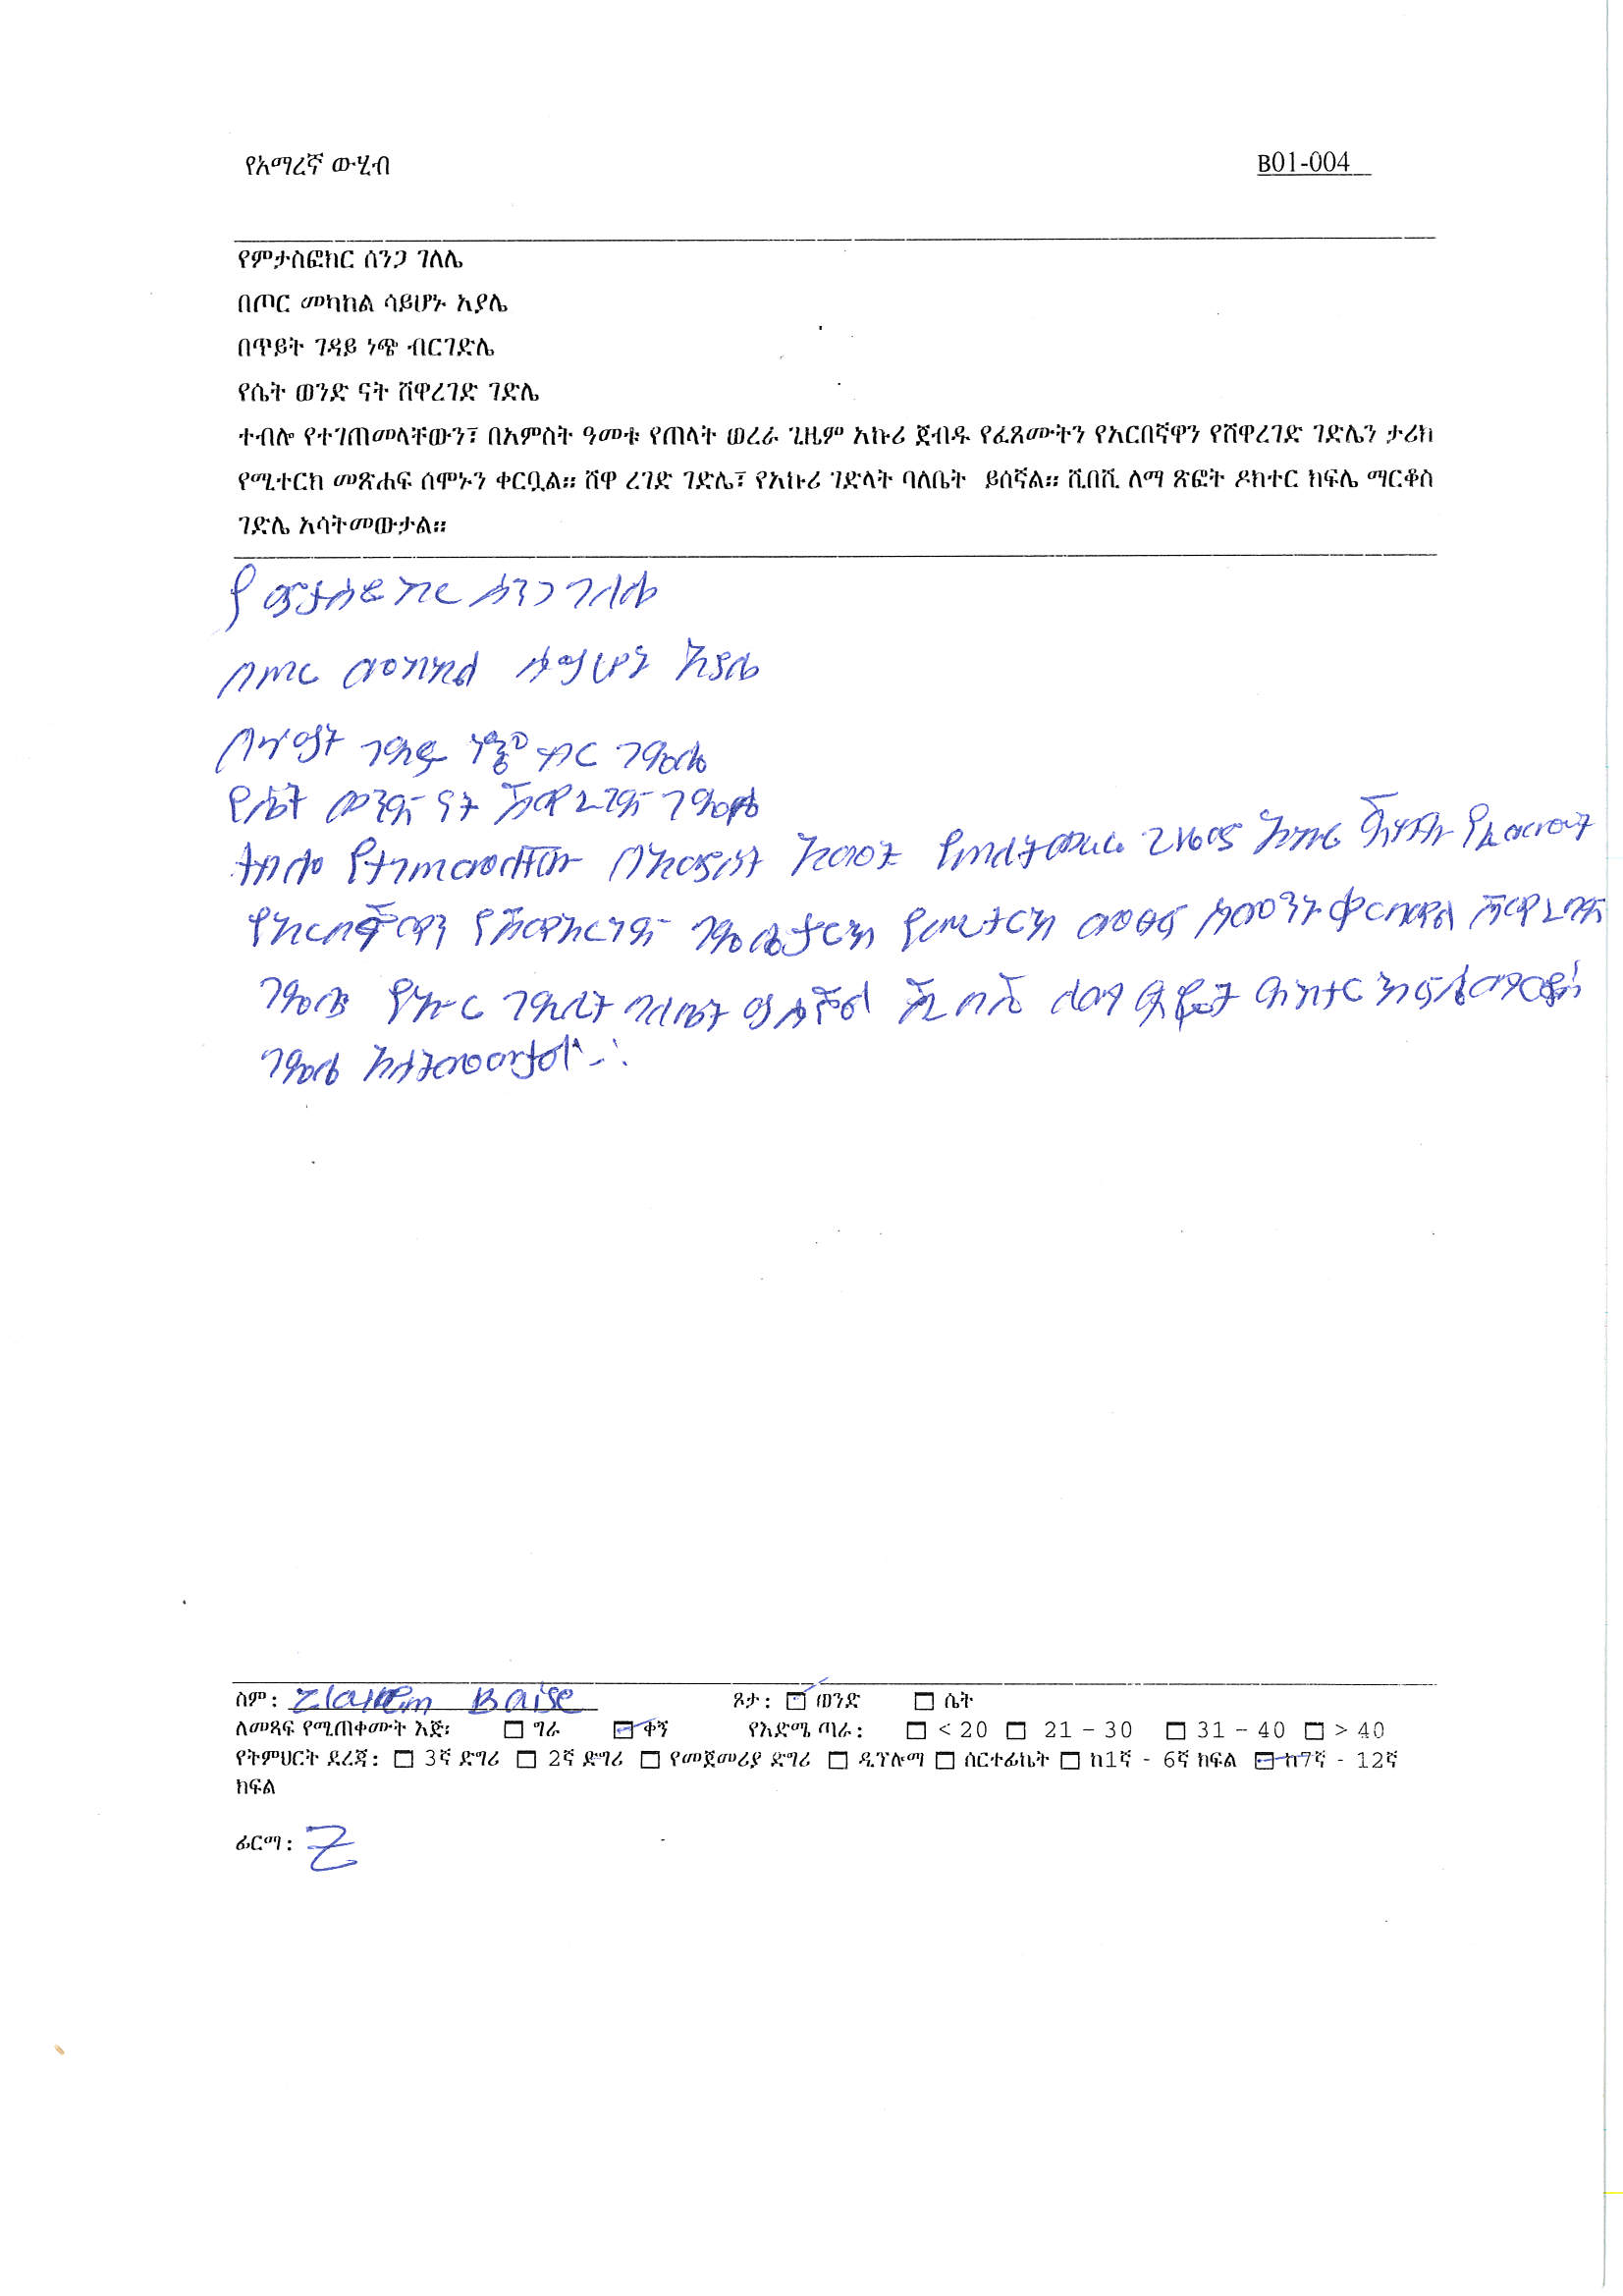 የአማረኛ ውሂብ B01-004
የምታስፎክር ሰንጋ ገለሌ
በጦር መካከል ሳይሆኑ አያሌ
በጥይት ገዳይ ነጭ ብርገድሌ
የሴት ወንድ ናት ሸዋረገድ ገድሌ
ተብሎ የተገጠመላቸውን፣ በአምስት ዓመቱ የጠላት ወረራ ጊዜም አኩሪ ጀብዱ የፈጸሙትን የአርበኛዋን የሸዋረገድ ገድሌን ታሪክ
የሚተርክ መጽሐፍ ሰሞኑን ቀርቧል። ሸዋ ረገድ ገድሌ፣ የአኩሪ ገድላት ባለቤት ይሰኛል። ሺበሺ ለማ ጽፎት ዶክተር ክፍሌ ማርቆስ
ገድሌ አሳትመውታል።
የምታስፎክር ሰንጋ ገለሌ
በጦር መካከል ሳይሆን አያሌ
በጥይት ገዳይ ነጭ ብር ገድሌ
የሴት ወንድ ናት ሸዋረገድ ገድሌ
ተብሎ የተገጠመላቸው በአምስት አመት የጠላት ወረራ ጊዜም አኩሪ ጀብዱ የፈጸሙት
የአርበኛዋን ገድሌ ታርክ የሚተርክ መፀፍ ሰሞኑን ቀርቧል ሸዋረገድ
ገድሌ የኩር ገድላት ባለቤት ይሰኛል ሺበሺ ለማ ፅፎት ዶክተር ክፍሌ ማርቆስ
ገድሌ አሳትመውታል።
ስም: Baise ጾታ: ወንድ ሴት
ለመጻፍ የሚጠቀሙት እጅ፡ ግራ ቀኝ የእድሜ ጣራ: < 20 21 – 30 31 – 40 > 40
የትምህርት ደረጃ: 3ኛ ድግሪ 2ኛ ድግሪ የመጀመሪያ ድግሪ ዲፕሎማ ሰርተፊኬት ከ1ኛ - 6ኛ ክፍል ከ7ኛ - 12ኛ
ክፍል
ፊርማ: Z